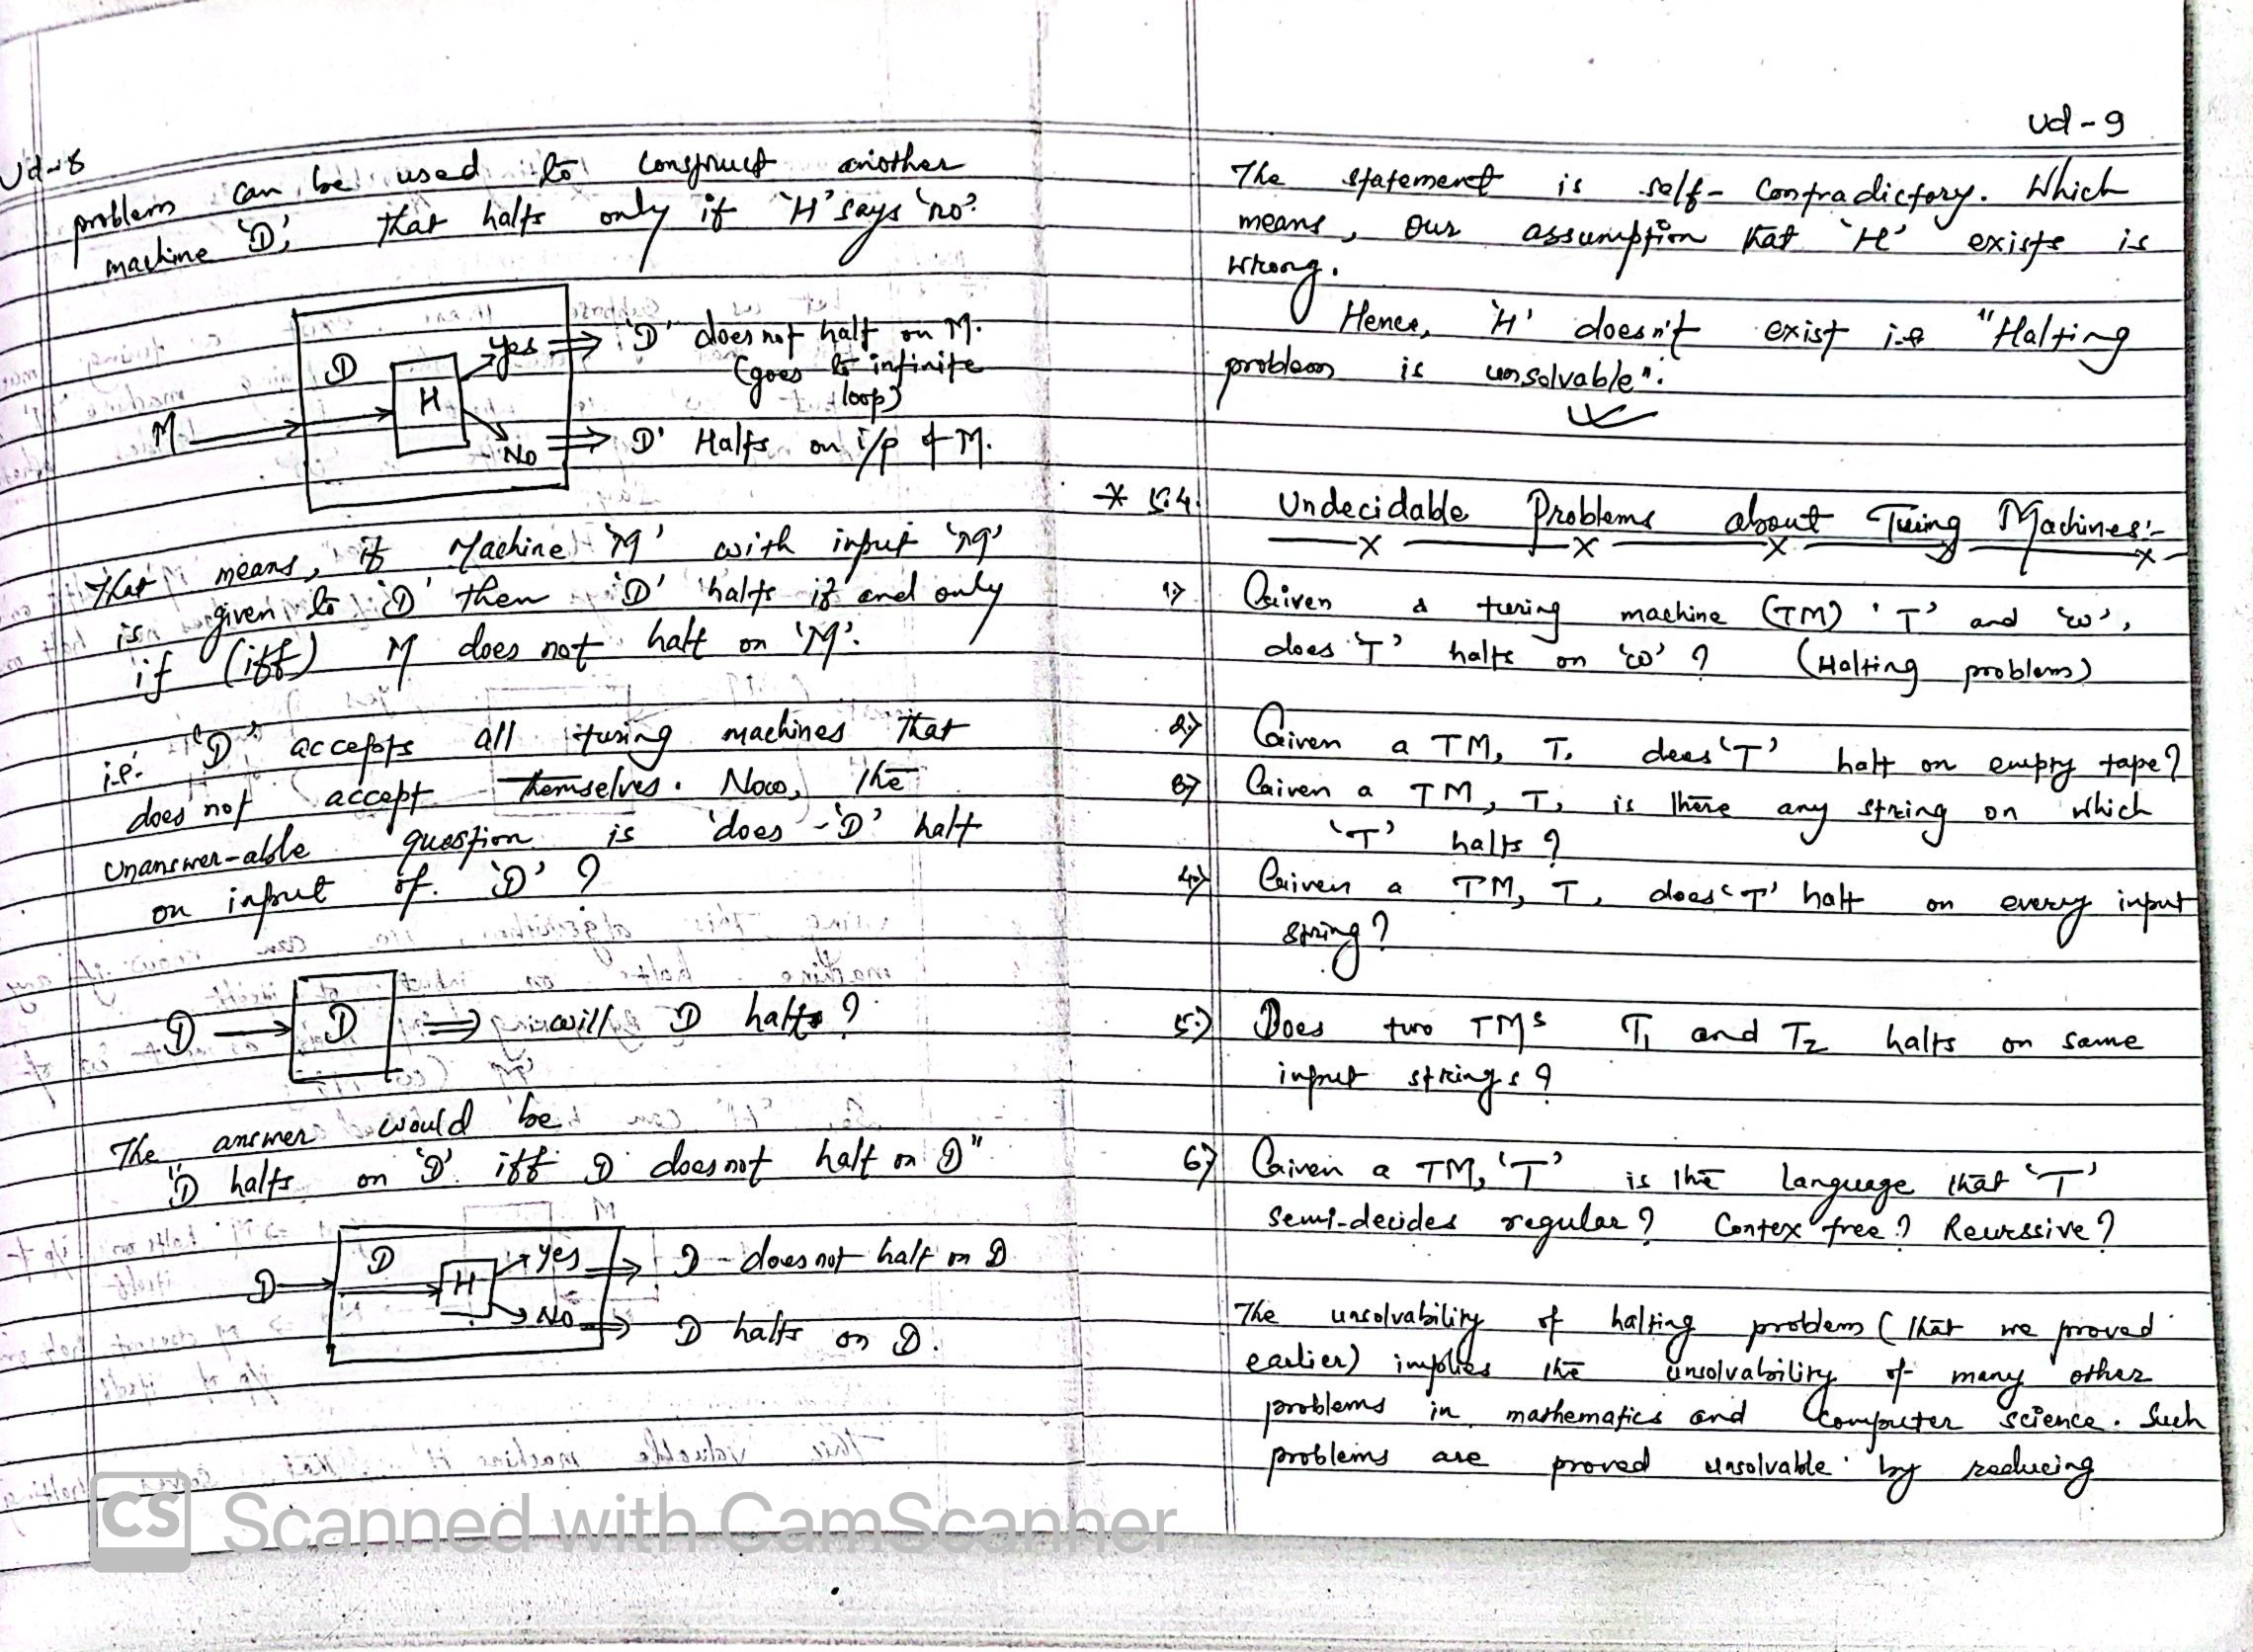 Ud-8
problem can be used to construct another
machine 'D', that halts only if 'H' says 'no'.
D
H
yes
'D' does not halt on M.
(goes to infinite
loop)
M
No
D' Halts on i/p of M.
That means, if Machine 'M' with input 'M'
is given to 'D' then 'D' halts if and only
if (iff) M does not halt on 'M'.
i.e. 'D' accepts all turing machines that
does not accept themselves. Now, the
unanswer-able question is 'does - 'D' halt
on input of 'D' ?
D
D
will D halts ?
The answer would be
"D halts on 'D' iff D does not halt on D"
D
D
H
yes
D - does not halt on D
No
D halts on D.
Ud-9
The statement is self-contradictory. Which
means, our assumption that 'H' exists is
wrong.
Hence, 'H' doesn't exist i.e "Halting
problem is unsolvable".
* 5.4. Undecidable Problems about Turing Machines:-
1.) Given a turing machine (TM) 'T' and 'w',
does 'T' halts on 'w' ? (Halting problem)
2.) Given a TM, T. does 'T' halt on empty tape?
3.) Given a TM, T, is there any string on which
'T' halts ?
4.) Given a TM, T, does 'T' halt on every input
string?
5.) Does two TMs T1 and T2 halts on same
input strings ?
6.) Given a TM, 'T' is the language that 'T'
semi-decides regular? Contex free? Recurssive?
The unsolvability of halting problem (that we proved
earlier) implies the unsolvability of many other
problems in mathematics and computer science. Such
problems are proved unsolvable by reducing
CS Scanned with CamScanner